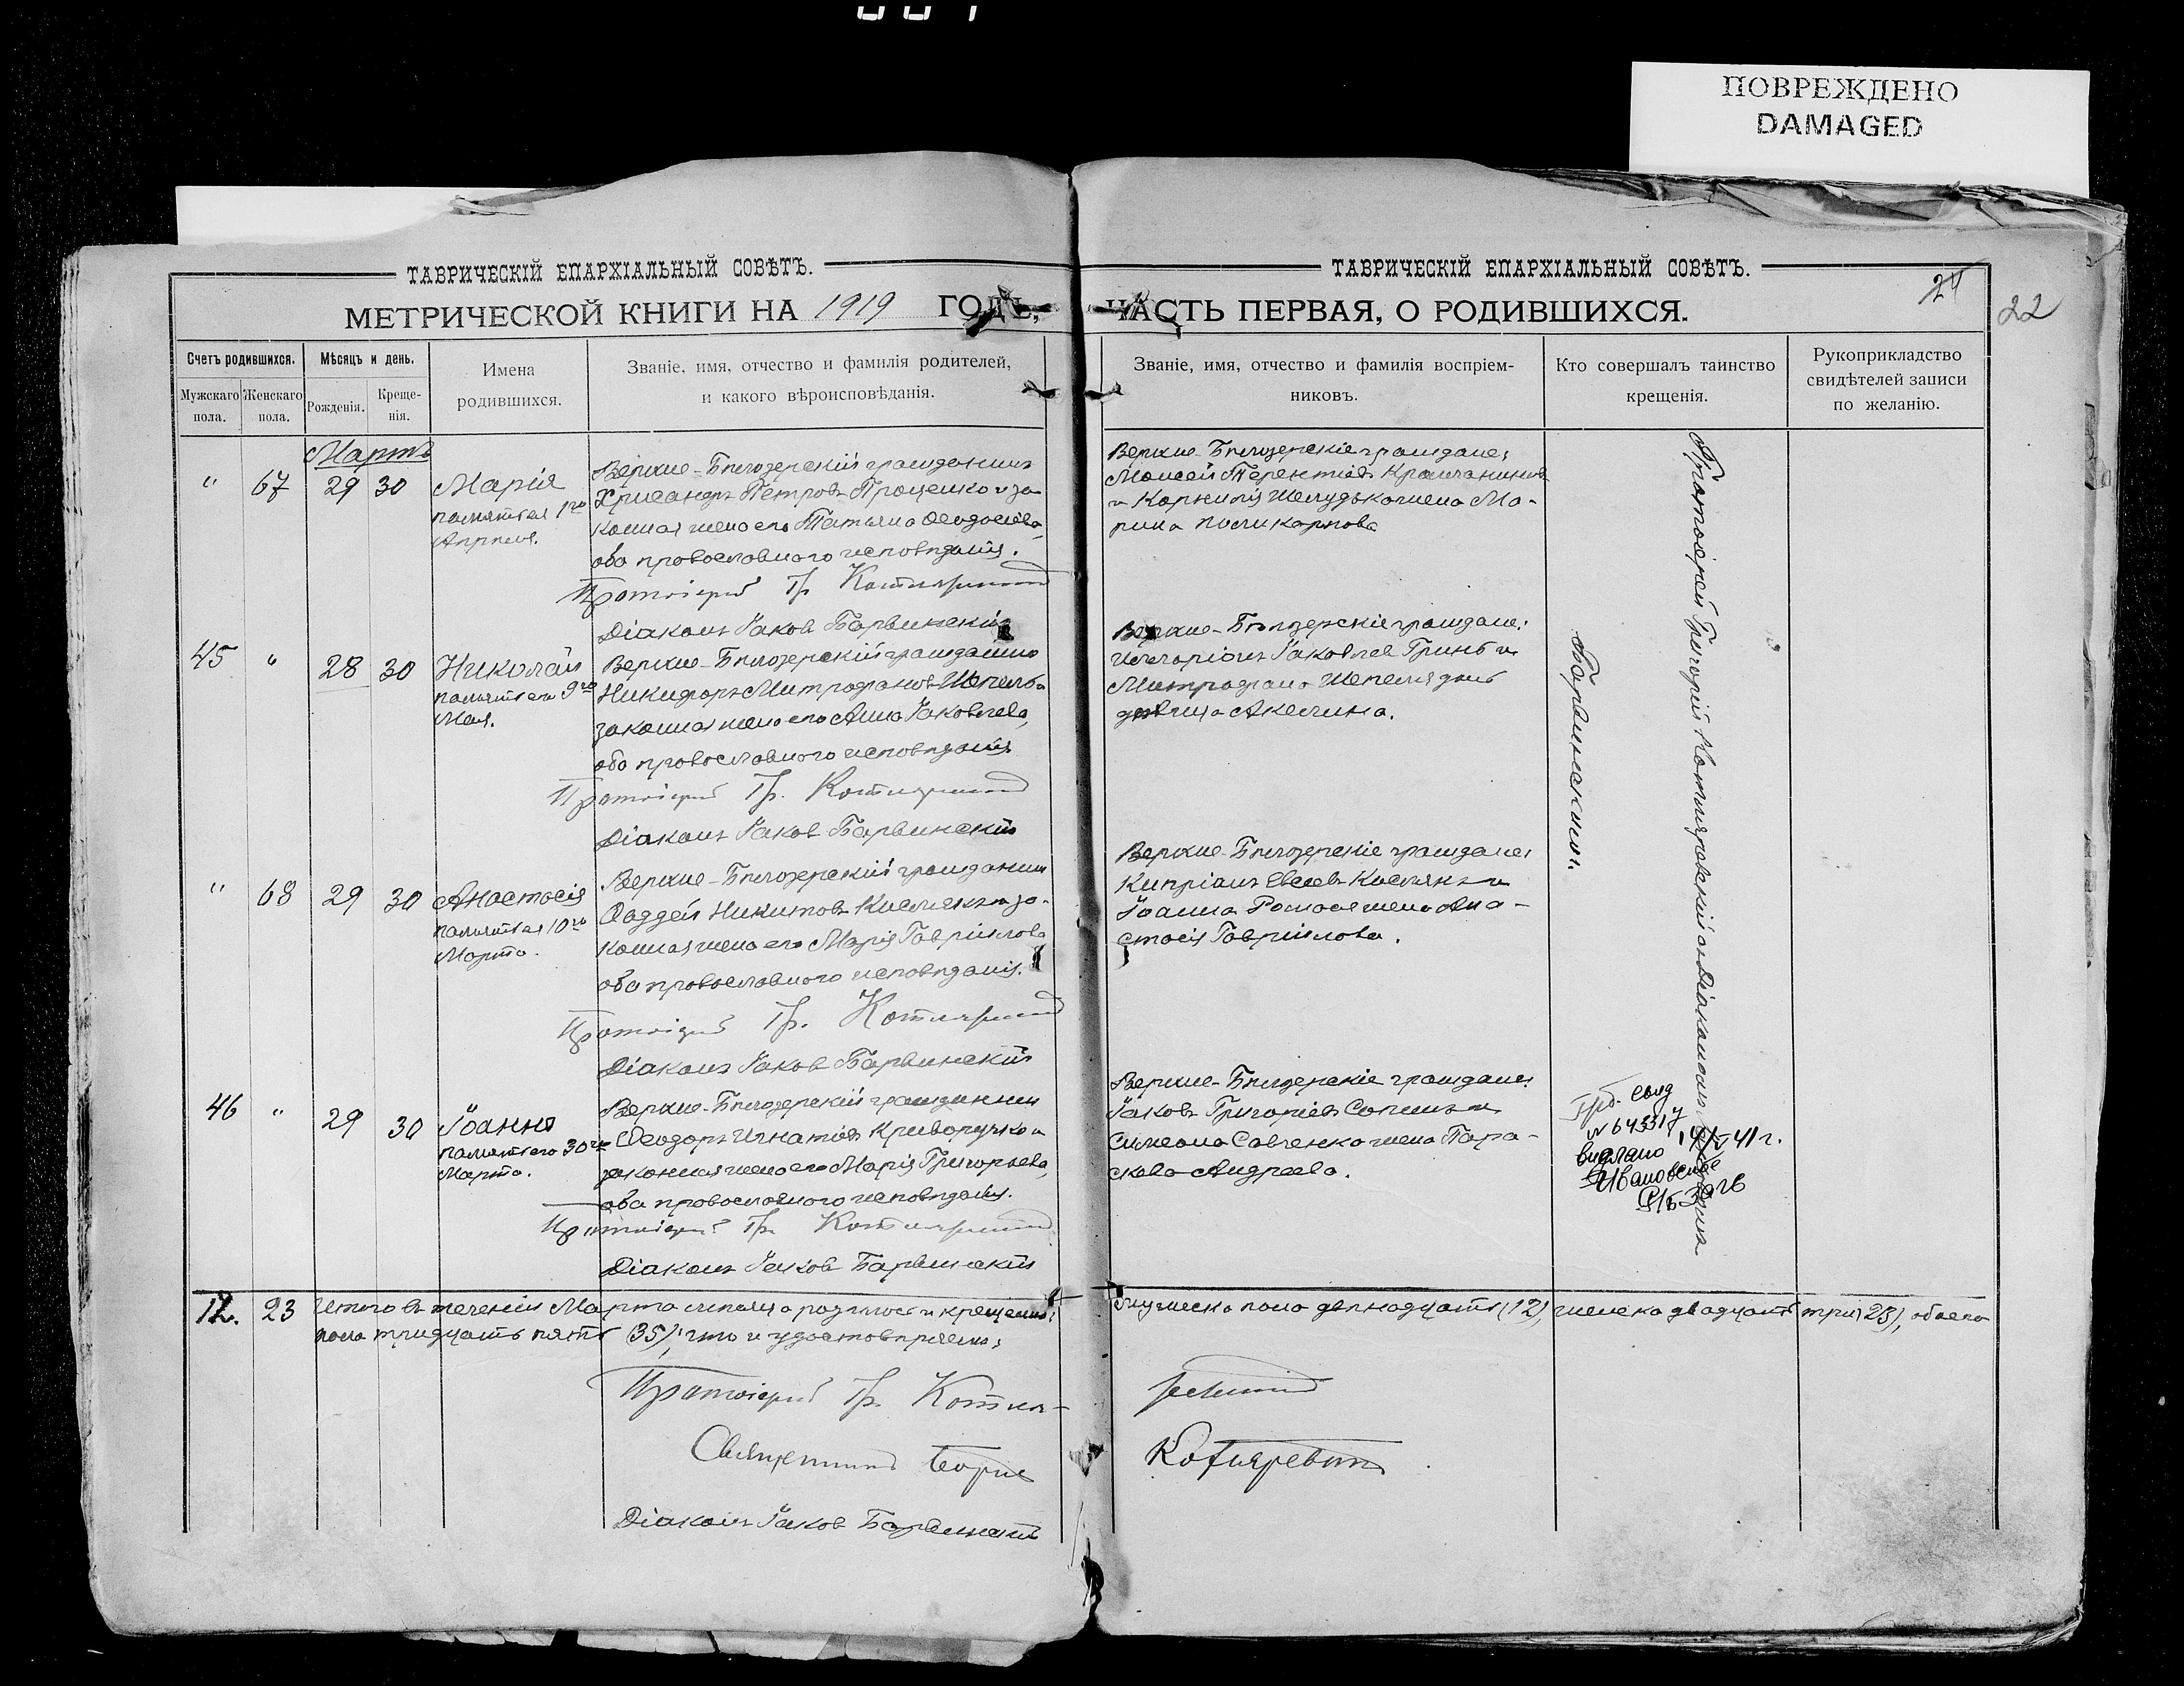 ПОВРЕЖДЕНО
DAMAGED
ТАВРИЧЕСКІЙ ЕПАРХІАЛЬНЫЙ СОВѢТЪ.
МЕТРИЧЕСКОЙ КНИГИ НА 1919 ГОДЪ,
Счетъ родившихся.
Мужскаго пола.
Женскаго пола.
Мѣсяцъ и день.
Рожденія.
Креще-
нія.
Имена
родившихся.
Званіе, имя, отчество и фамилія родителей,
и какого вѣроисповѣданія.
Мартъ
" 67 29 30
Марія
памятная 1го
Апрѣля.
Верхне-Бѣлозерскій гражданинъ
Хрисандръ Петровъ Проценко и за-
конная жена его Татьяна Ѳеодосіева,
оба православнаго исповѣданія.
Протоіерей Гр. Котляревскій
Діаконъ Іаковъ Барвинскій
45 " 28 30
Николай
памят. его 9го
Мая.
Верхне-Бѣлозерскій гражданинъ
Никифоръ Митрофановъ и
законная жена его Анна Іаковлева,
оба православнаго исповѣданія
Протоіерей Гр. Котляревскій
Діаконъ Іаковъ Барвинскій
" 68 29 30
Анастасія
памятная 10го
Марта.
Верхне-Бѣлозерскій гражданинъ
Ѳаддей Никитовъ Кислякъ и за-
конная жена его Марія Гавріилова
оба православнаго исповѣданія.
Протоіерей Гр. Котляревскій
Діаконъ Іаковъ Барвинскій
46 " 29 30
Іоаннъ
память его 30го
Марта.
Верхне-Бѣлозерскій гражданинъ
Ѳеодоръ Игнатовъ Криворучко и
законная жена его Марія Григорьева,
оба православнаго исповѣданія.
Протоіерей Гр. Котляревскій
Діаконъ Іаковъ Барвинскій
12. 23 Итого въ теченіи Марта мѣсяца родилось и крещено:
пола тридцать пять (35), что и удостовѣряемъ:
Протоіерей Гр. Котля-
Священникъ Борис
Діаконъ Іаковъ Барвинскій
ТАВРИЧЕСКІЙ ЕПАРХІАЛЬНЫЙ СОВѢТЪ.
ЧАСТЬ ПЕРВАЯ, О РОДИВШИХСЯ.
24
22
Званіе, имя, отчество и фамилія воспріем-
никовъ.
Кто совершалъ таинство
крещенія.
Рукоприкладство
свидѣтелей записи
по желанію.
Верхне-Бѣлозерскіе граждане:
Моисей Терентіевъ
и Корнилія Шелудька жена Ма-
рина Поликарпова
Верхне-Бѣлозерскіе граждане:
Илларіонъ Іаковлев Гринь и
Митрофана дочь
дѣвица Акилина.
Верхне-Бѣлозерскіе граждане:
Кипріанъ Евсеевъ Кислякъ и
Іоанна жена Ана-
стасія Гавріилова.
Верхне-Бѣлозерскіе граждане:
Іаковъ Григоріевъ и
Симеона Савченко жена Пара-
скева Андреева.
Протоіерей Григорій Котляревскій съ Діакономъ
Барвинскимъ.
N 643317
видано
мужеска пола двѣнадцать (12), женска двадцать три (23), обоего
ревскій
Котляревскій